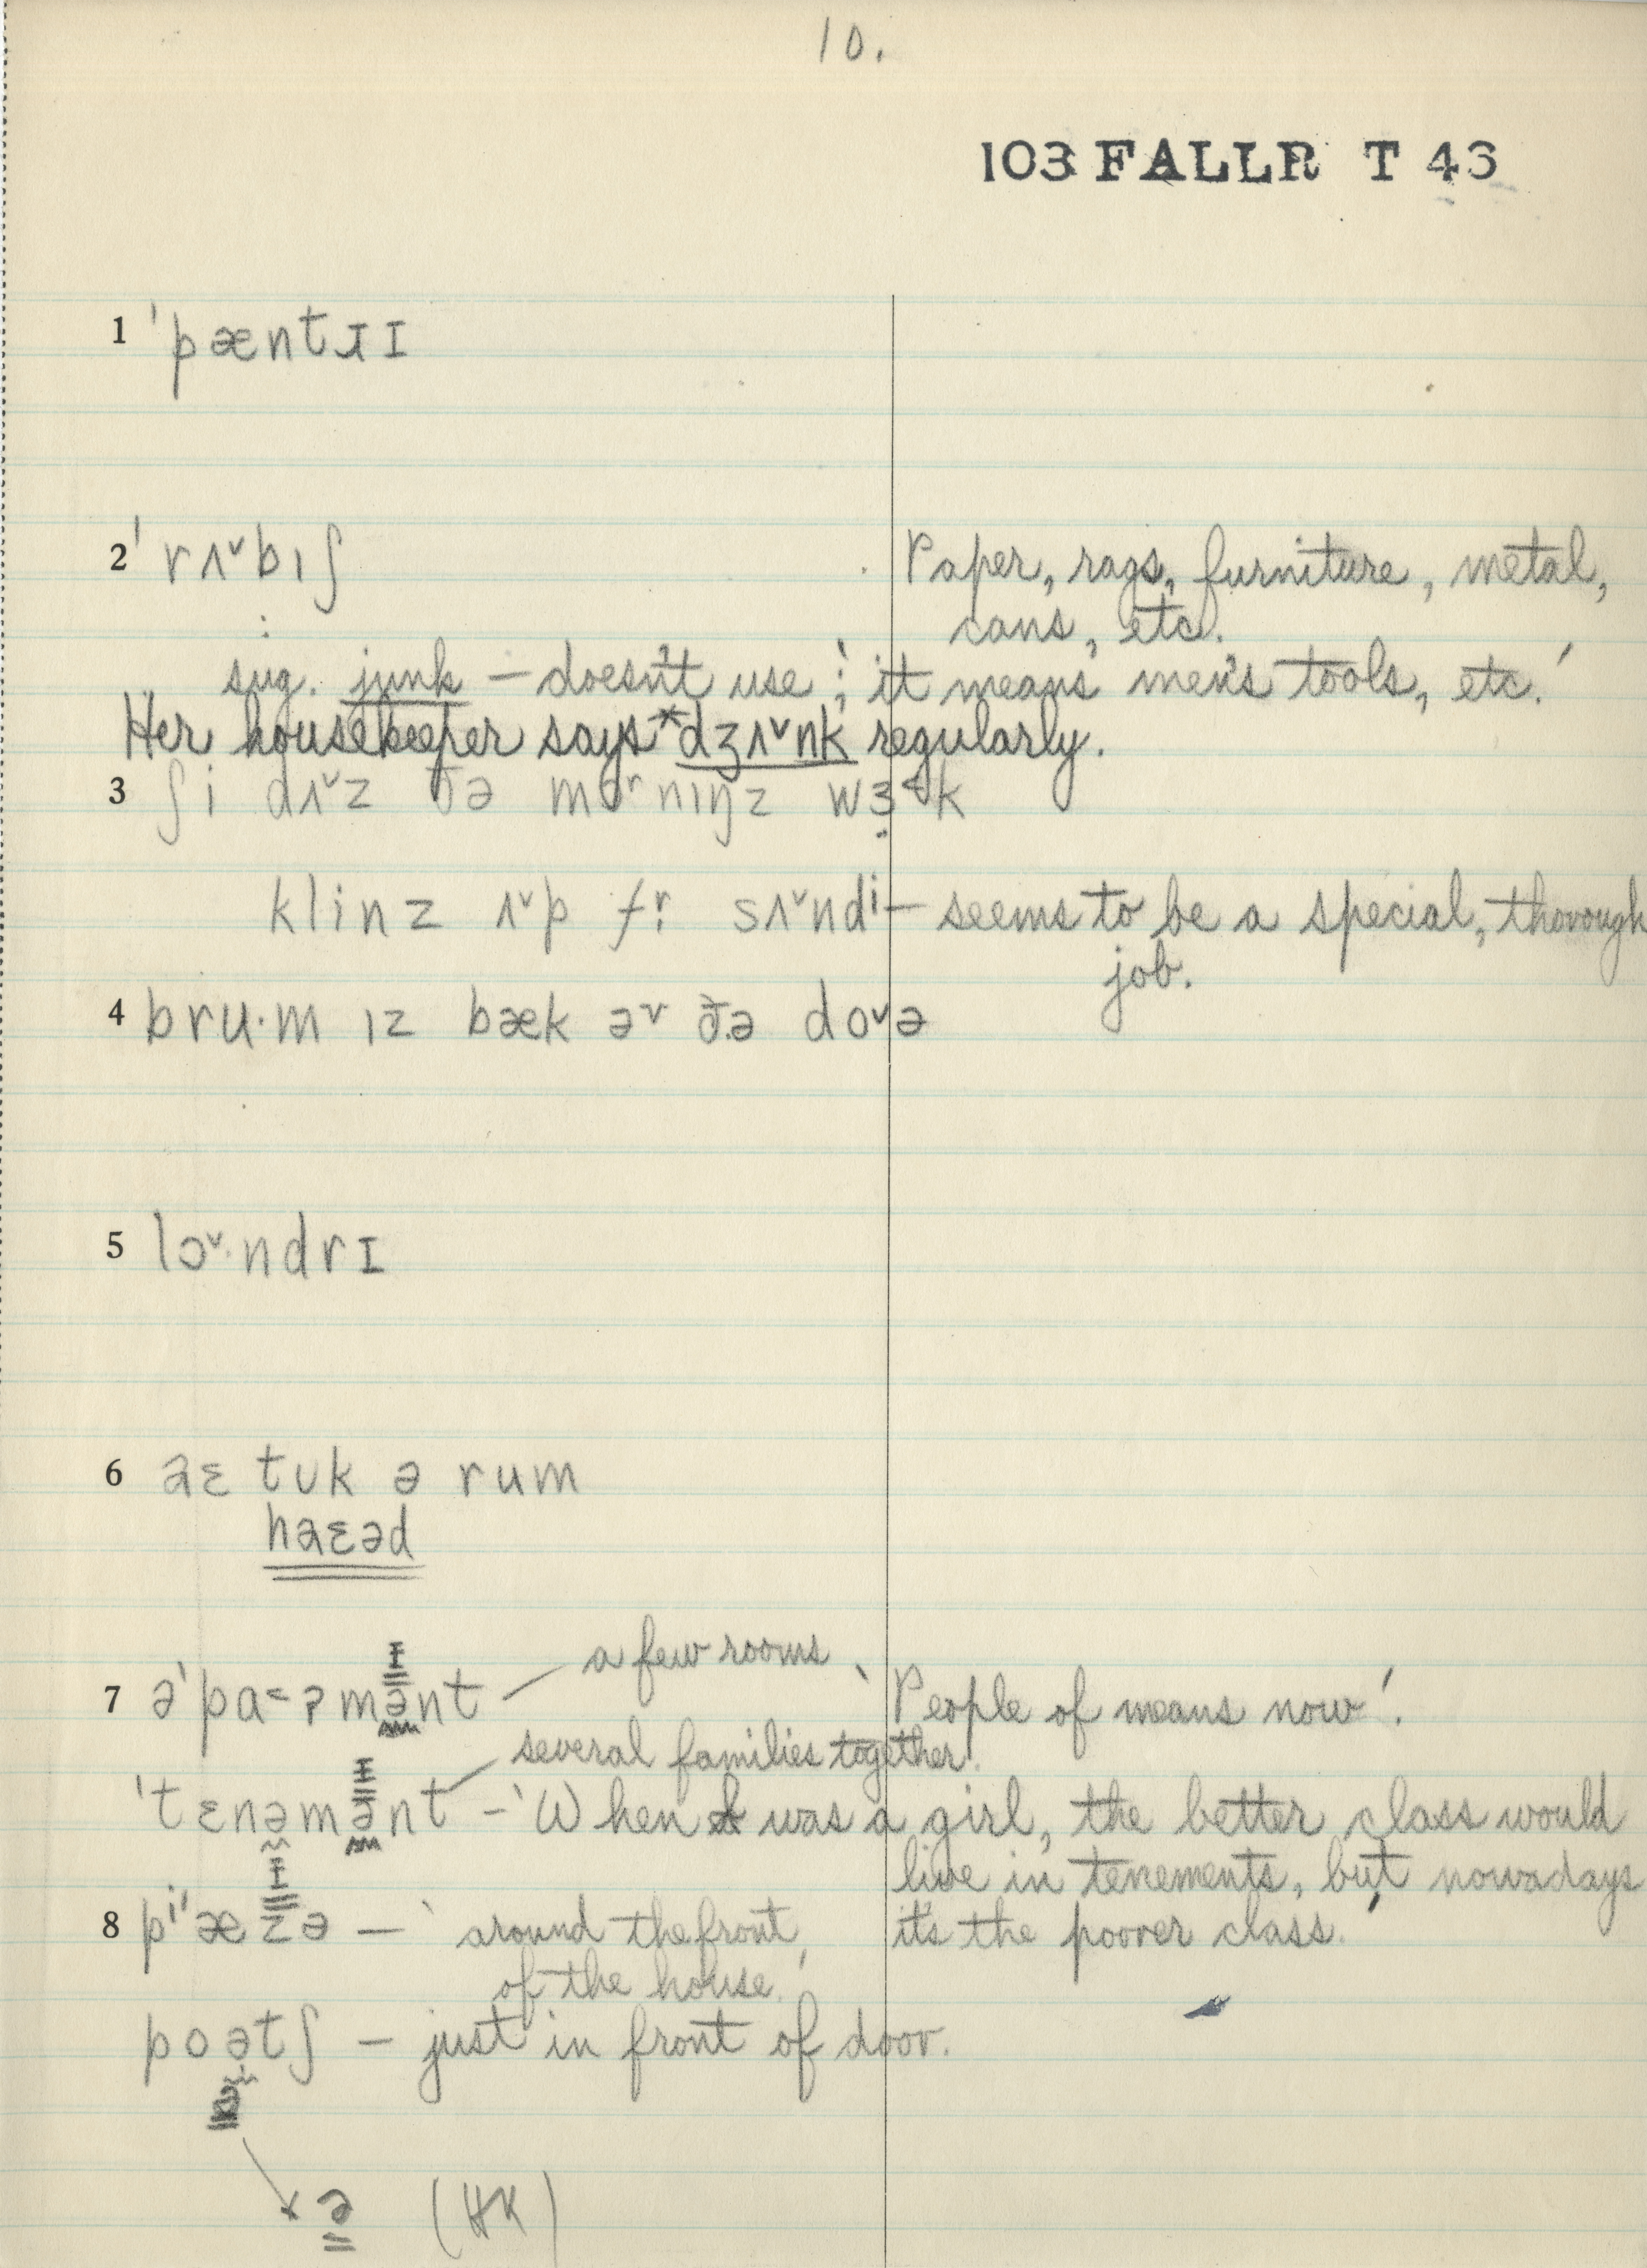 10.
103 FALLR T 43
1 ˈpæntɹɪ
2 ˈrʌ˅bɪʃ Paper, rags, furniture, metal,
cans, etc.
sug. junk — doesn't use; 'it means men's tools, etc.'
Her housekeeper says *dʒʌ˅nk regularly.
3 ʃi dʌ˅z ðə mɒrnɪŋz wɜ˂k
klinz ʌ˅p fr sʌ˅ndi — seems to be a special, thorough
job.
4 bru·m ɪz bæk əv ðə do˅ə
5 lɔ˅·ndrɪ
6 aɛ tʊk ə rum
haɛəd
7 əˈpa˂ʔmənt — a few rooms 'People of means now'.
several families together.
ˈtɛnəmənt — 'When I was a girl, the better class would
live in tenements, but nowadays
8 piˈæzə — 'around the front it's the poorer class.'
of the house.'
poətʃ — just in front of door.
ə (HK)